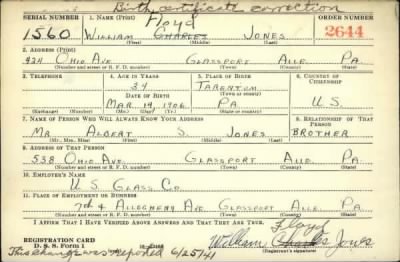 Birth certificate correction
SERIAL NUMBER 1. NAME (Print) ORDER NUMBER
Floyd
1560 WILLIAM CHARLES JONES 2644
(First) (Middle) (Last)
2. ADDRESS (Print)
OHIO AVE. GLASSPORT ALLE. PA.
(Number and street or R. F. D. number) (Town) (County) (State)
3. TELEPHONE 4. AGE IN YEARS 5. PLACE OF BIRTH 6. COUNTRY OF CITIZENSHIP
34 TARENTUM
DATE OF BIRTH (Town or county)
MAR 14 1906 PA U.S.
(Exchange) (Number) (Mo.) (Day) (Yr.) (State or country)
7. NAME OF PERSON WHO WILL ALWAYS KNOW YOUR ADDRESS 8. RELATIONSHIP OF THAT PERSON
MR ALBERT S. JONES BROTHER
(Mr., Mrs., Miss) (First) (Middle) (Last)
9. ADDRESS OF THAT PERSON
538 OHIO AVE. GLASSPORT ALLE. PA.
(Number and street or R. F. D. number) (Town) (County) (State)
10. EMPLOYER'S NAME
U. S. GLASS CO
11. PLACE OF EMPLOYMENT OR BUSINESS
7th & ALLEGHENY AVE GLASSPORT ALLE. PA.
(Number and street or R. F. D. number) (Town) (County) (State)
I AFFIRM THAT I HAVE VERIFIED ABOVE ANSWERS AND THAT THEY ARE TRUE.
Floyd
REGISTRATION CARD
D. S. S. Form 1 William Charles Jones
(Registrant's signature)
This change was reported 6/25/41